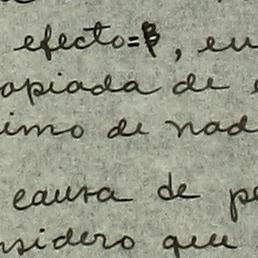 efecto=B, en
opiada de
imo de nad
causa de pe
nsidero que